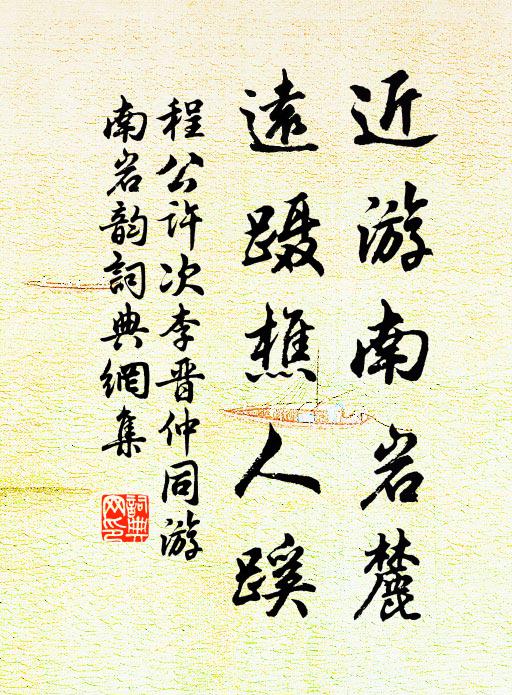 近游南岩麓
遠蹑樵人蹊
程公许次李晋仲同游
南岩韵詞典網集
詞典网印